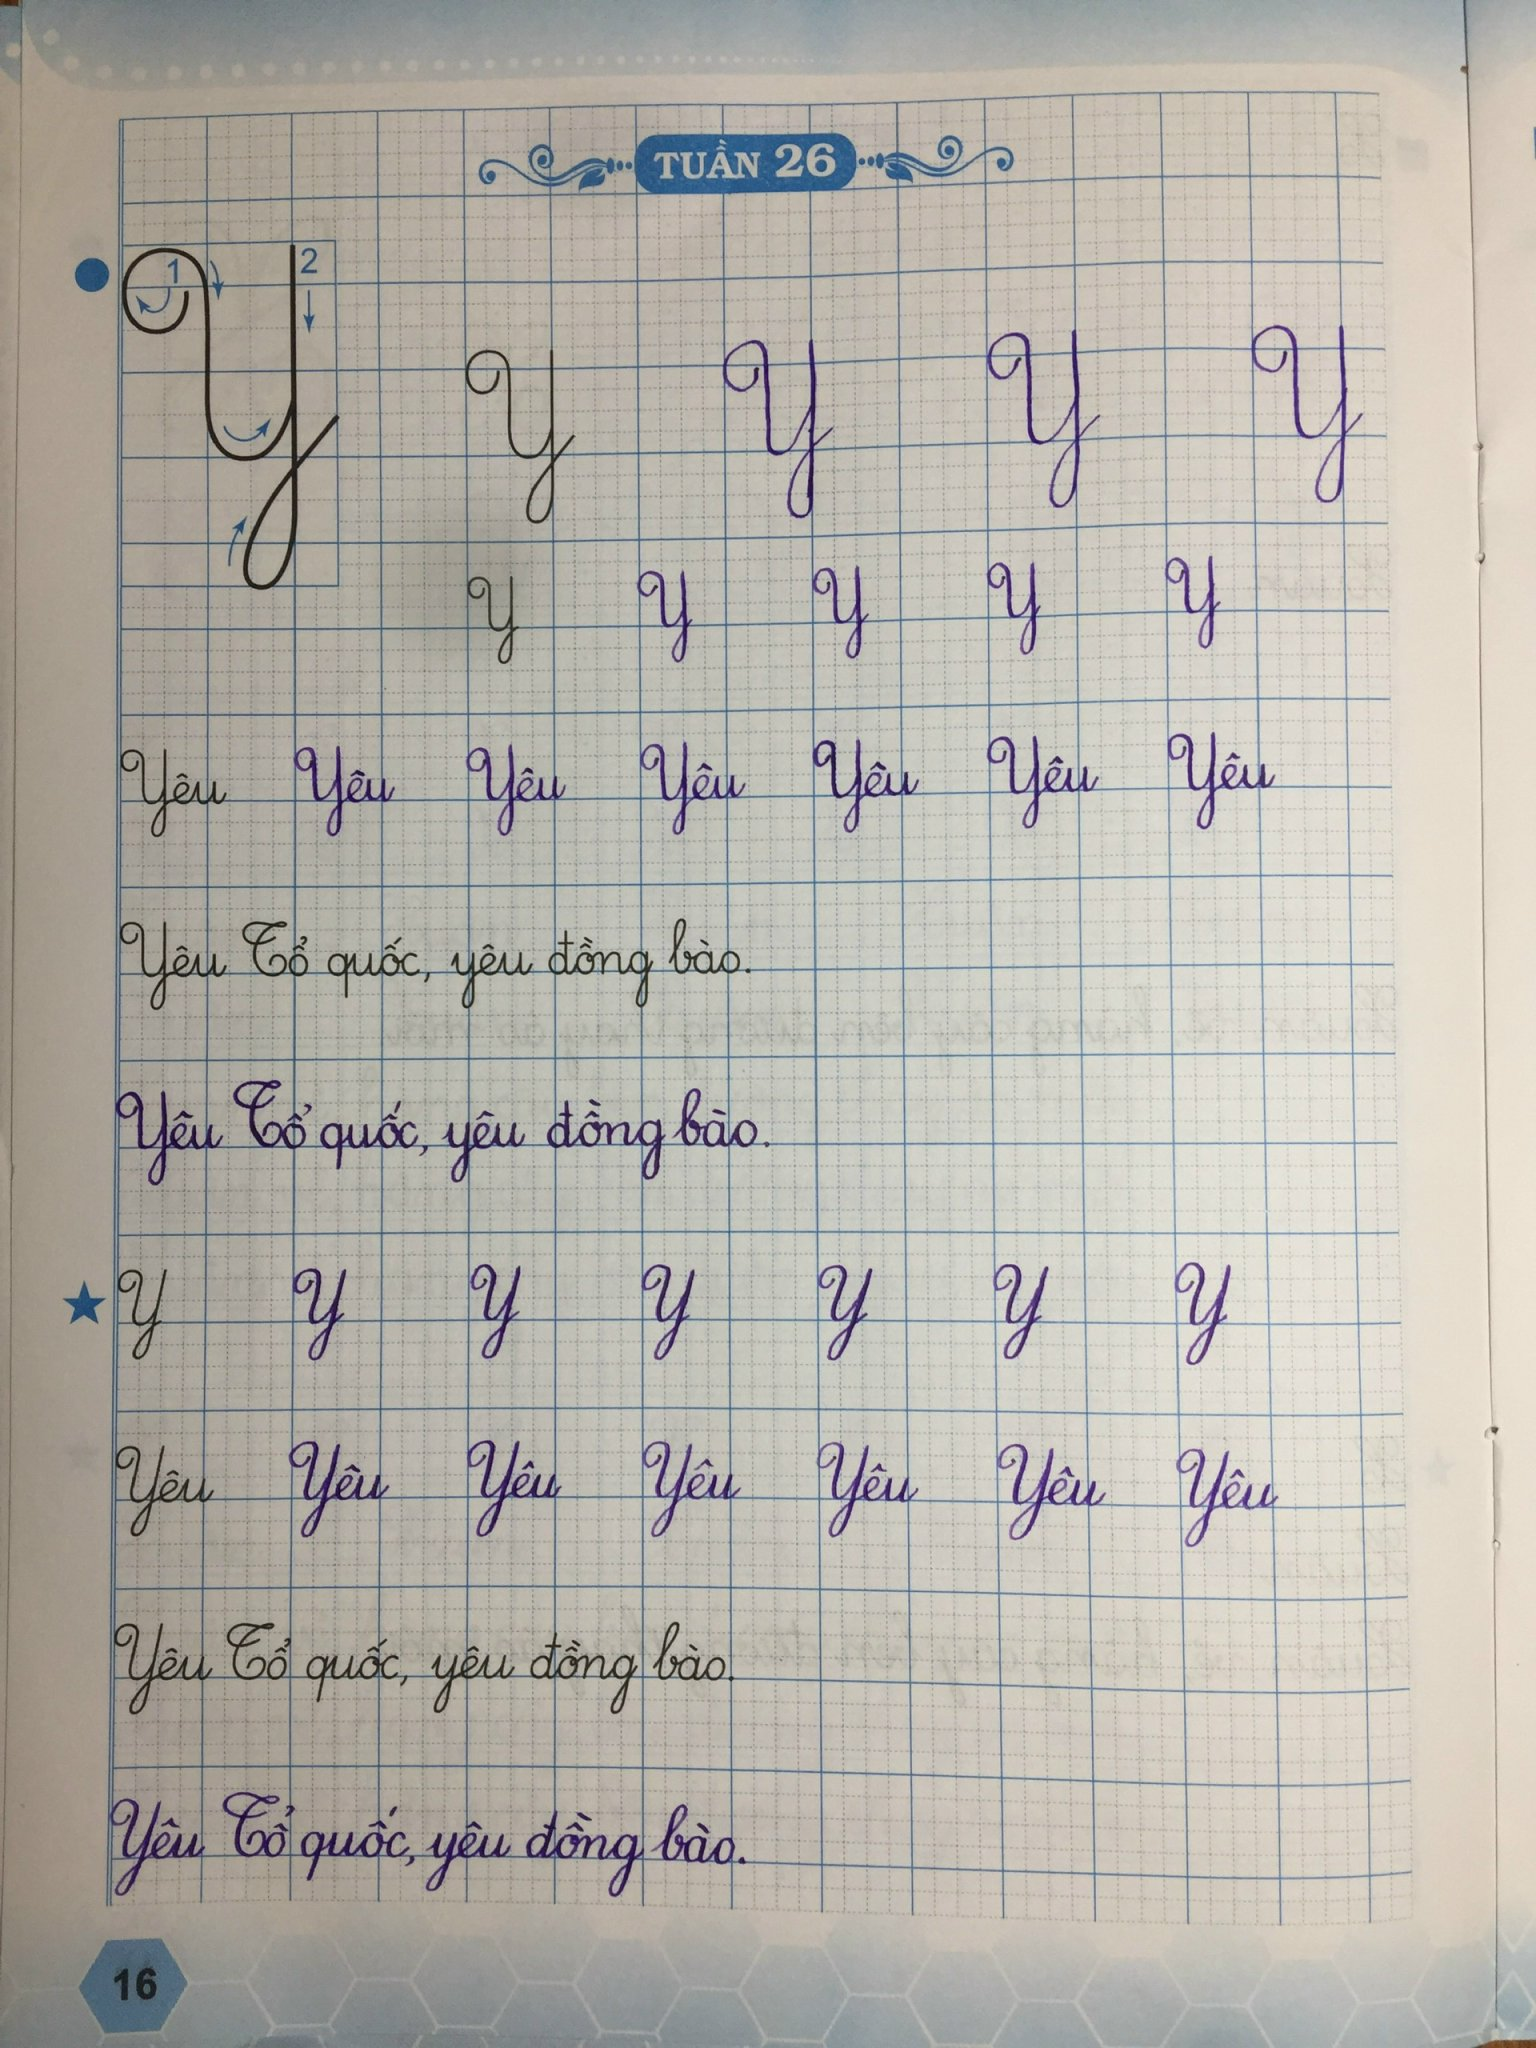 TUẦN 26
1 2
Y Y Y Y Y
Y Y Y Y Y
Yêu Yêu Yêu Yêu Yêu Yêu Yêu
Yêu Tổ quốc, yêu đồng bào.
Yêu Tổ quốc, yêu đồng bào.
Y Y Y Y Y Y Y
Yêu Yêu Yêu Yêu Yêu Yêu Yêu
Yêu Tổ quốc, yêu đồng bào.
Yêu Tổ quốc, yêu đồng bào.
16